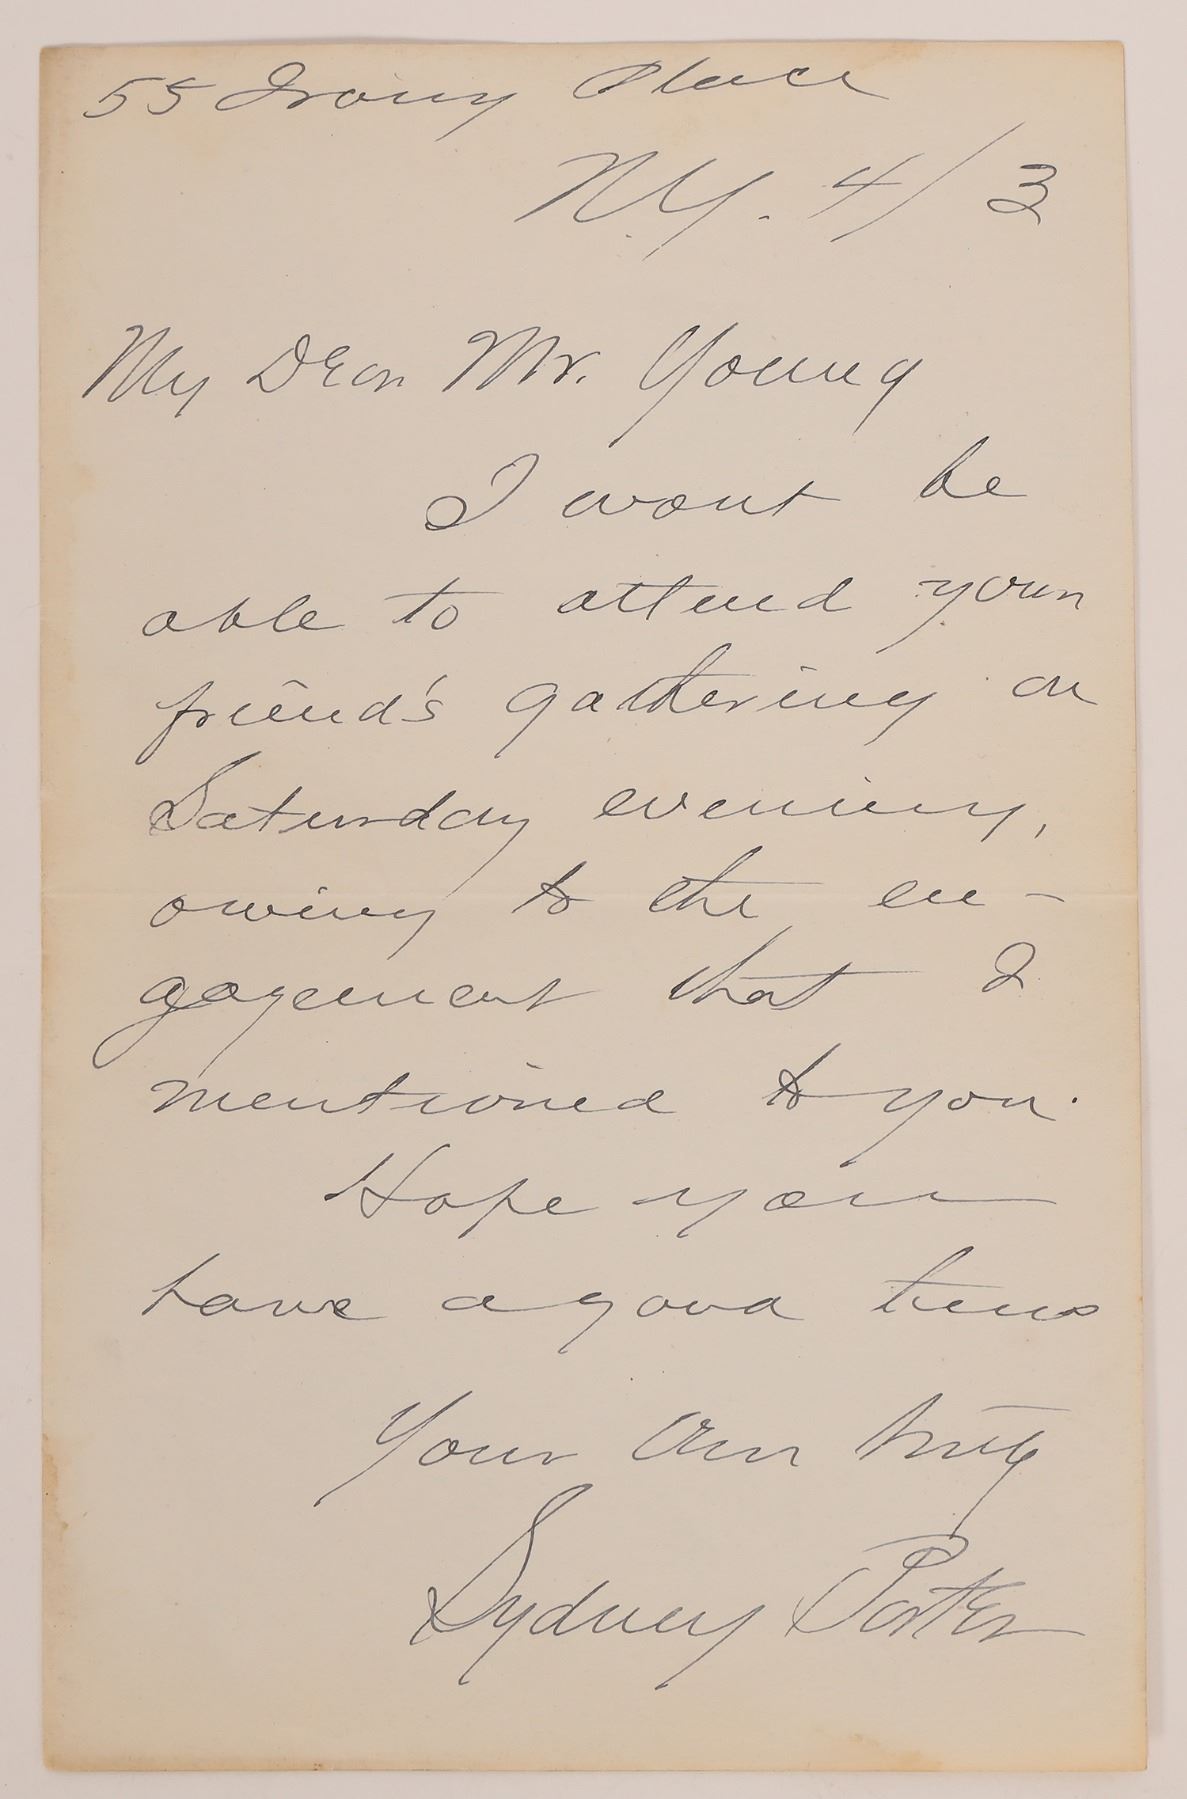 55 Irving Place
N.Y. 4/3
My Dear Mr. Young
I wont be
able to attend your
friend's gathering on
Saturday evening,
owing to the en-
gagement that I
mentioned to you.
Hope you
have a good time
Your own truly
Sydney Porter